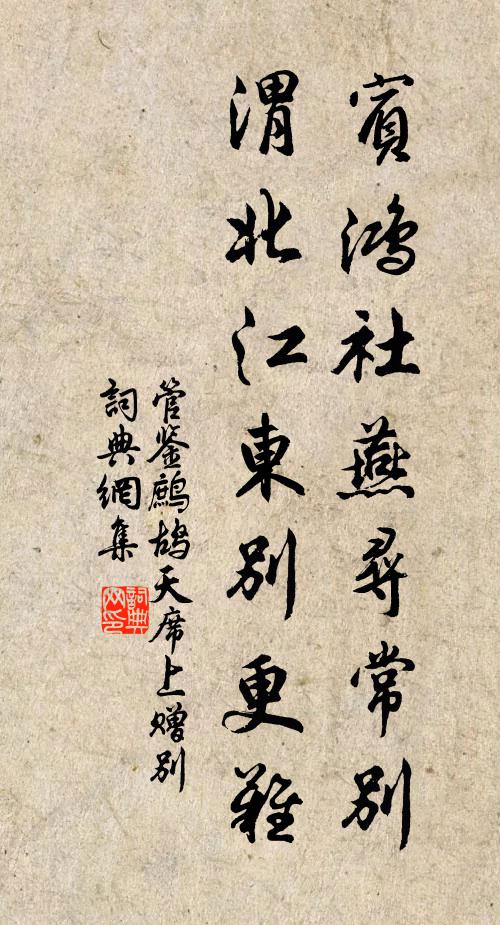 賓鴻社燕尋常別
渭北江東別更難
管鉴鷓鴣天席上赠別
詞典網集
詞典网印